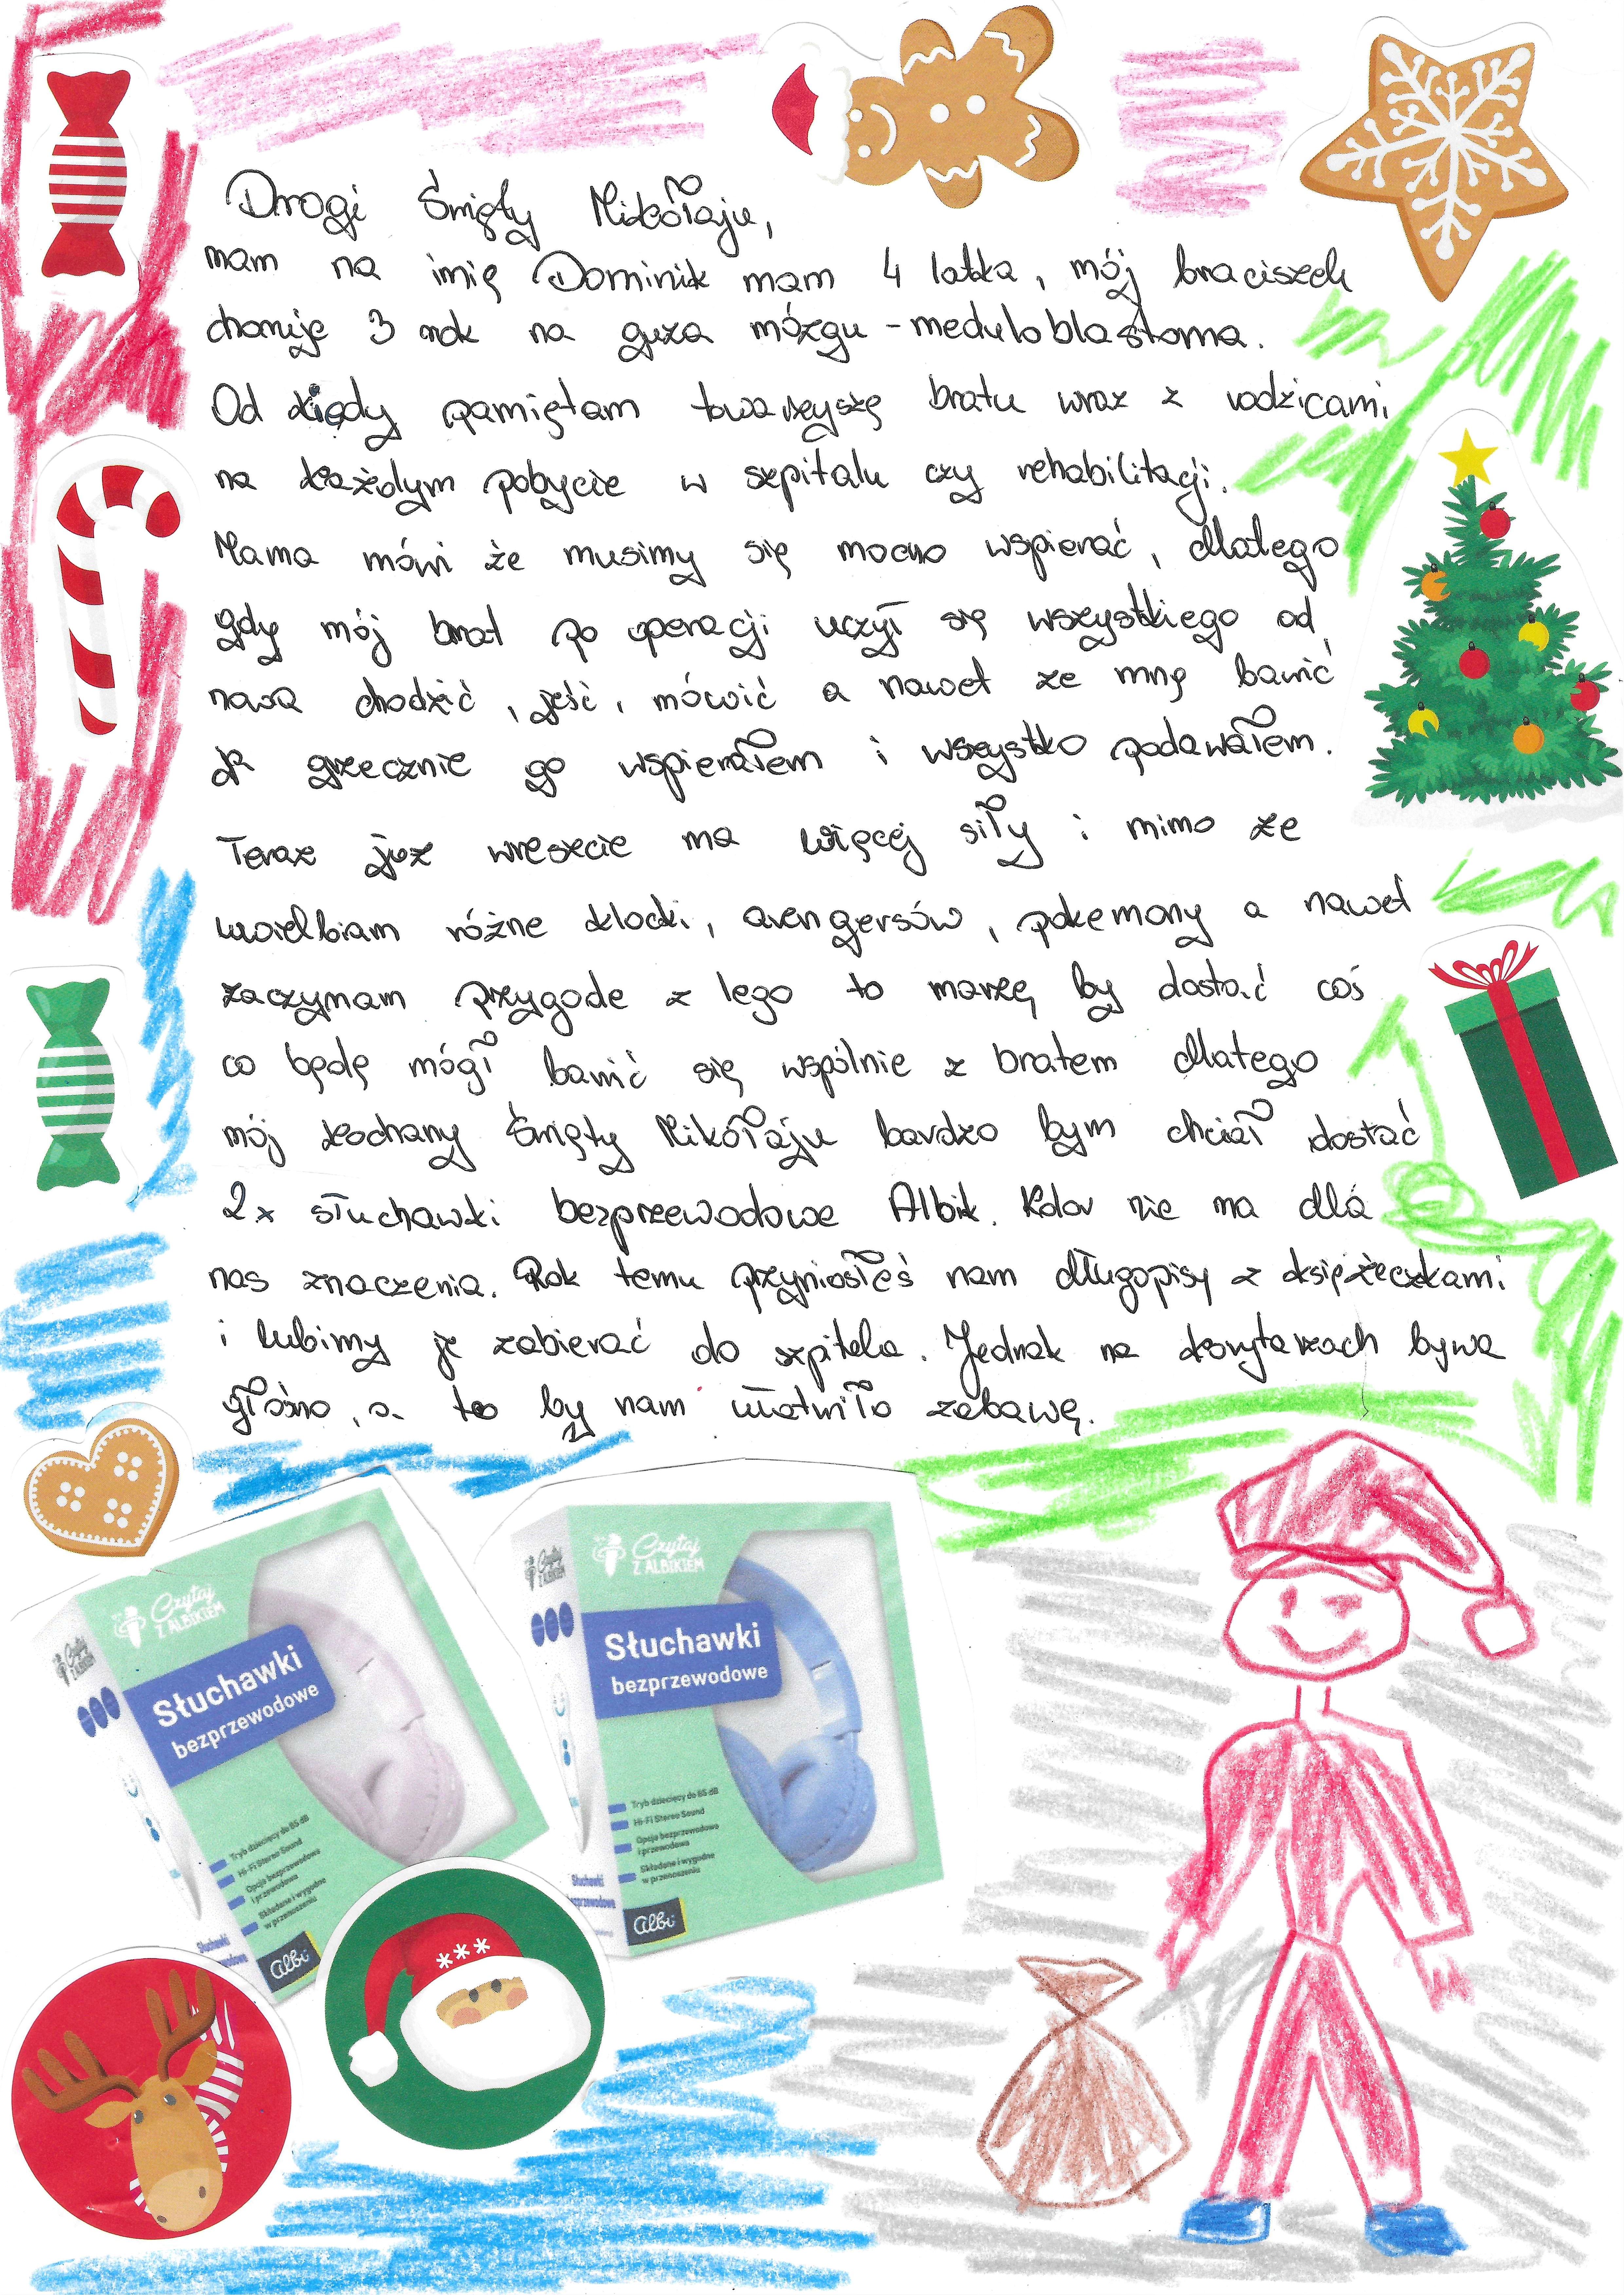 Drogi Święty Mikołaju,
mam na imię Dominik mam 4 latka, mój braciszek
choruje 3 rok na guza mózgu - meduloblastoma.
Od kiedy pamiętam towarzyszę bratu wraz z rodzicami
na każdym pobycie w szpitalu czy rehabilitacji.
Mama mówi że musimy się mocno wspierać, dlatego
gdy mój brat po operacji uczył się wszystkiego od
nowa chodzić, jeść, mówić a nawet ze mną bawić
ja grzecznie go wspierałem i wszystko podawałem.
Teraz już wreszcie ma więcej siły i mimo że
uwielbiam różne klocki, avengersów, pokemony a nawet
zaczynam przygode z lego to marzę by dostać coś
co będę mógł bawić się wspólnie z bratem dlatego
mój kochany Święty Mikołaju bardzo bym chciał dostać
2x słuchawki bezprzewodowe Albik. Kolor nie ma dla
nas znaczenia. Rok temu przyniosłeś nam długopisy z książeczkami
i lubimy je zabierać do szpitala. Jednak na korytarzach bywa
głośno, a to by nam ułatwiło zabawę.
Czytaj
Z ALBIKIEM
Słuchawki
bezprzewodowe
Tryb dziecięcy do 85 dB
Hi-Fi Stereo Sound
Opcja bezprzewodowa
i przewodowa
Składane i wygodne
w przenoszeniu
Słuchawki
albi
Czytaj
Z ALBIKIEM
Czytaj
Z ALBIKIEM
Słuchawki
bezprzewodowe
Tryb dziecięcy do 85 dB
Hi-Fi Stereo Sound
Opcja bezprzewodowa
i przewodowa
Składane i wygodne
w przenoszeniu
Słuchawki
albi